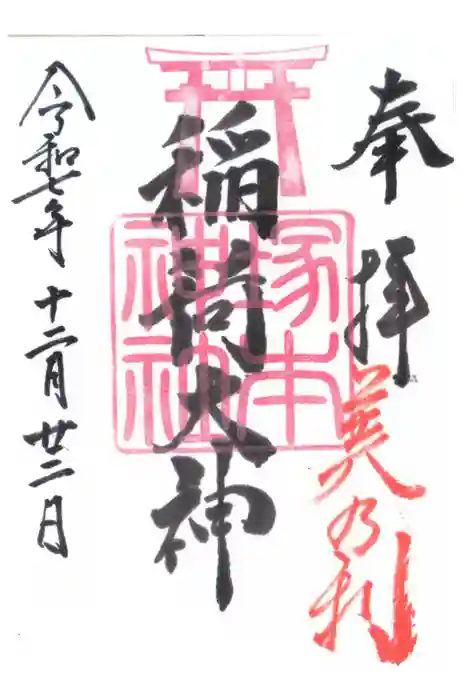 奉拝
美乃利
稲荷大神
塚本
令和七年 十二月 廿二日